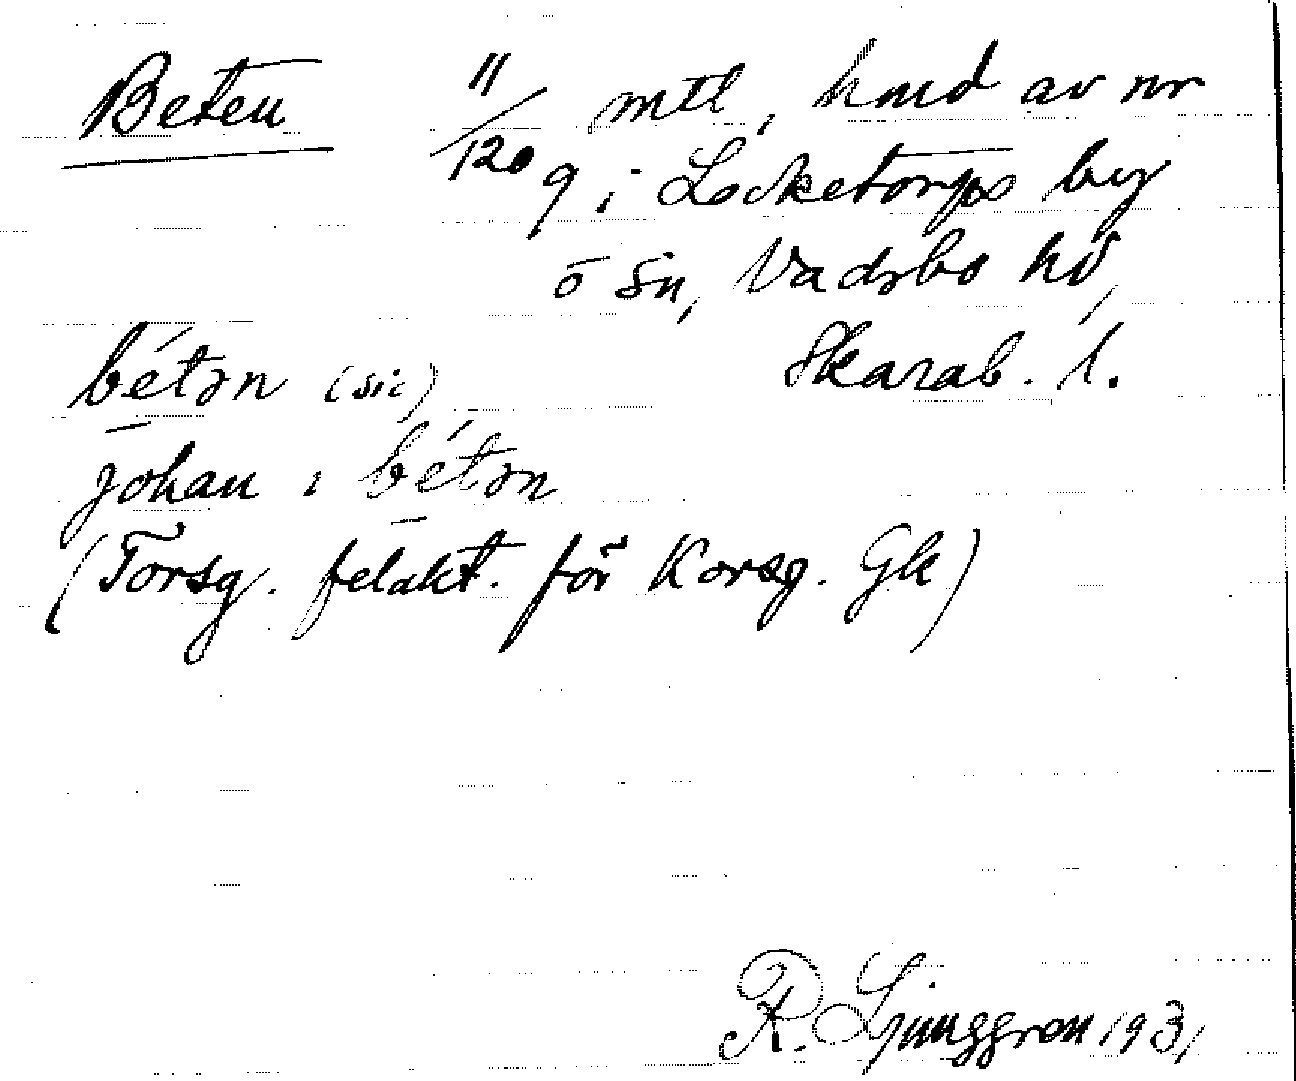 Beten 11/120 mtl, hmd av nr
9 i Locketorps by
o sn, Vadsbo hd,
Skarab. l.
bétɔn (sic)
johan i bétɔn
(Torsg. felakt. för Korsg. Gk)
R. Ljunggren 1931